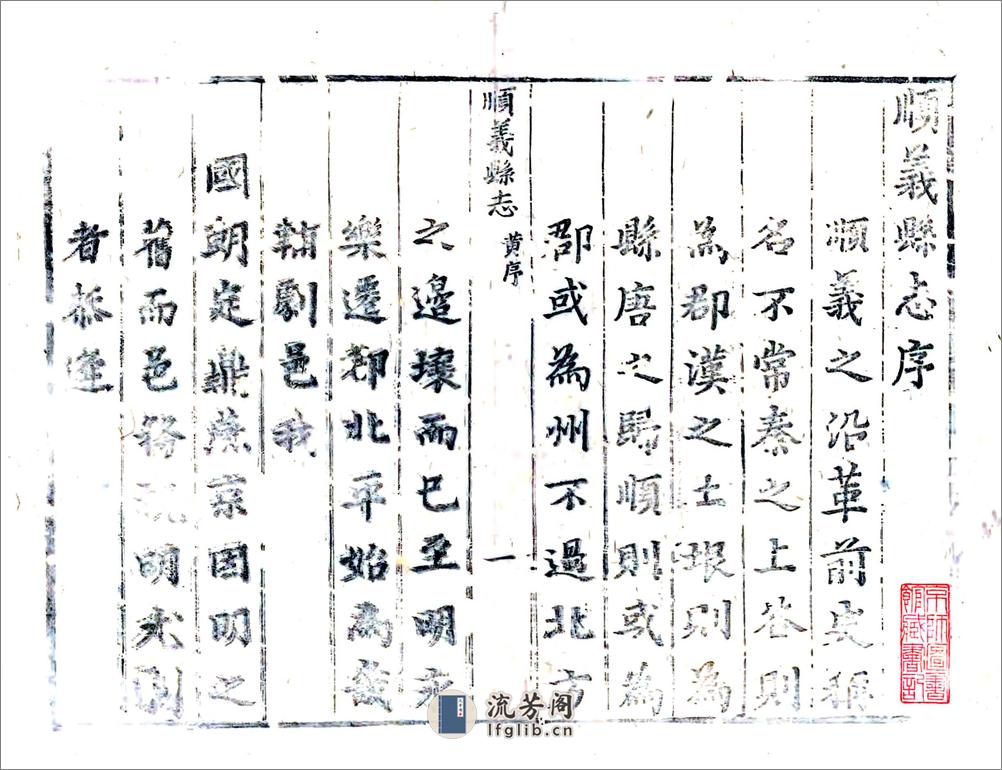 順義縣志序
順義之沿革前史稱
名不常秦之上谷則
為郡漢之土垠則為
縣唐之歸順則或為
郡或為州不過北方
順義縣志 黄序 一
之邊壤而已至明永
樂遷都北平始為畿
輔劇邑我
國朝定鼎燕京因明之
舊而邑務視明尤劇
者恭逢
京師圖書
館藏書記
流芳阁
lfglib.cn